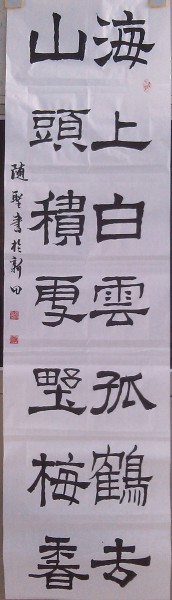 海上白雲孤鶴去
山頭積更墅梅香
隨聖書於新田